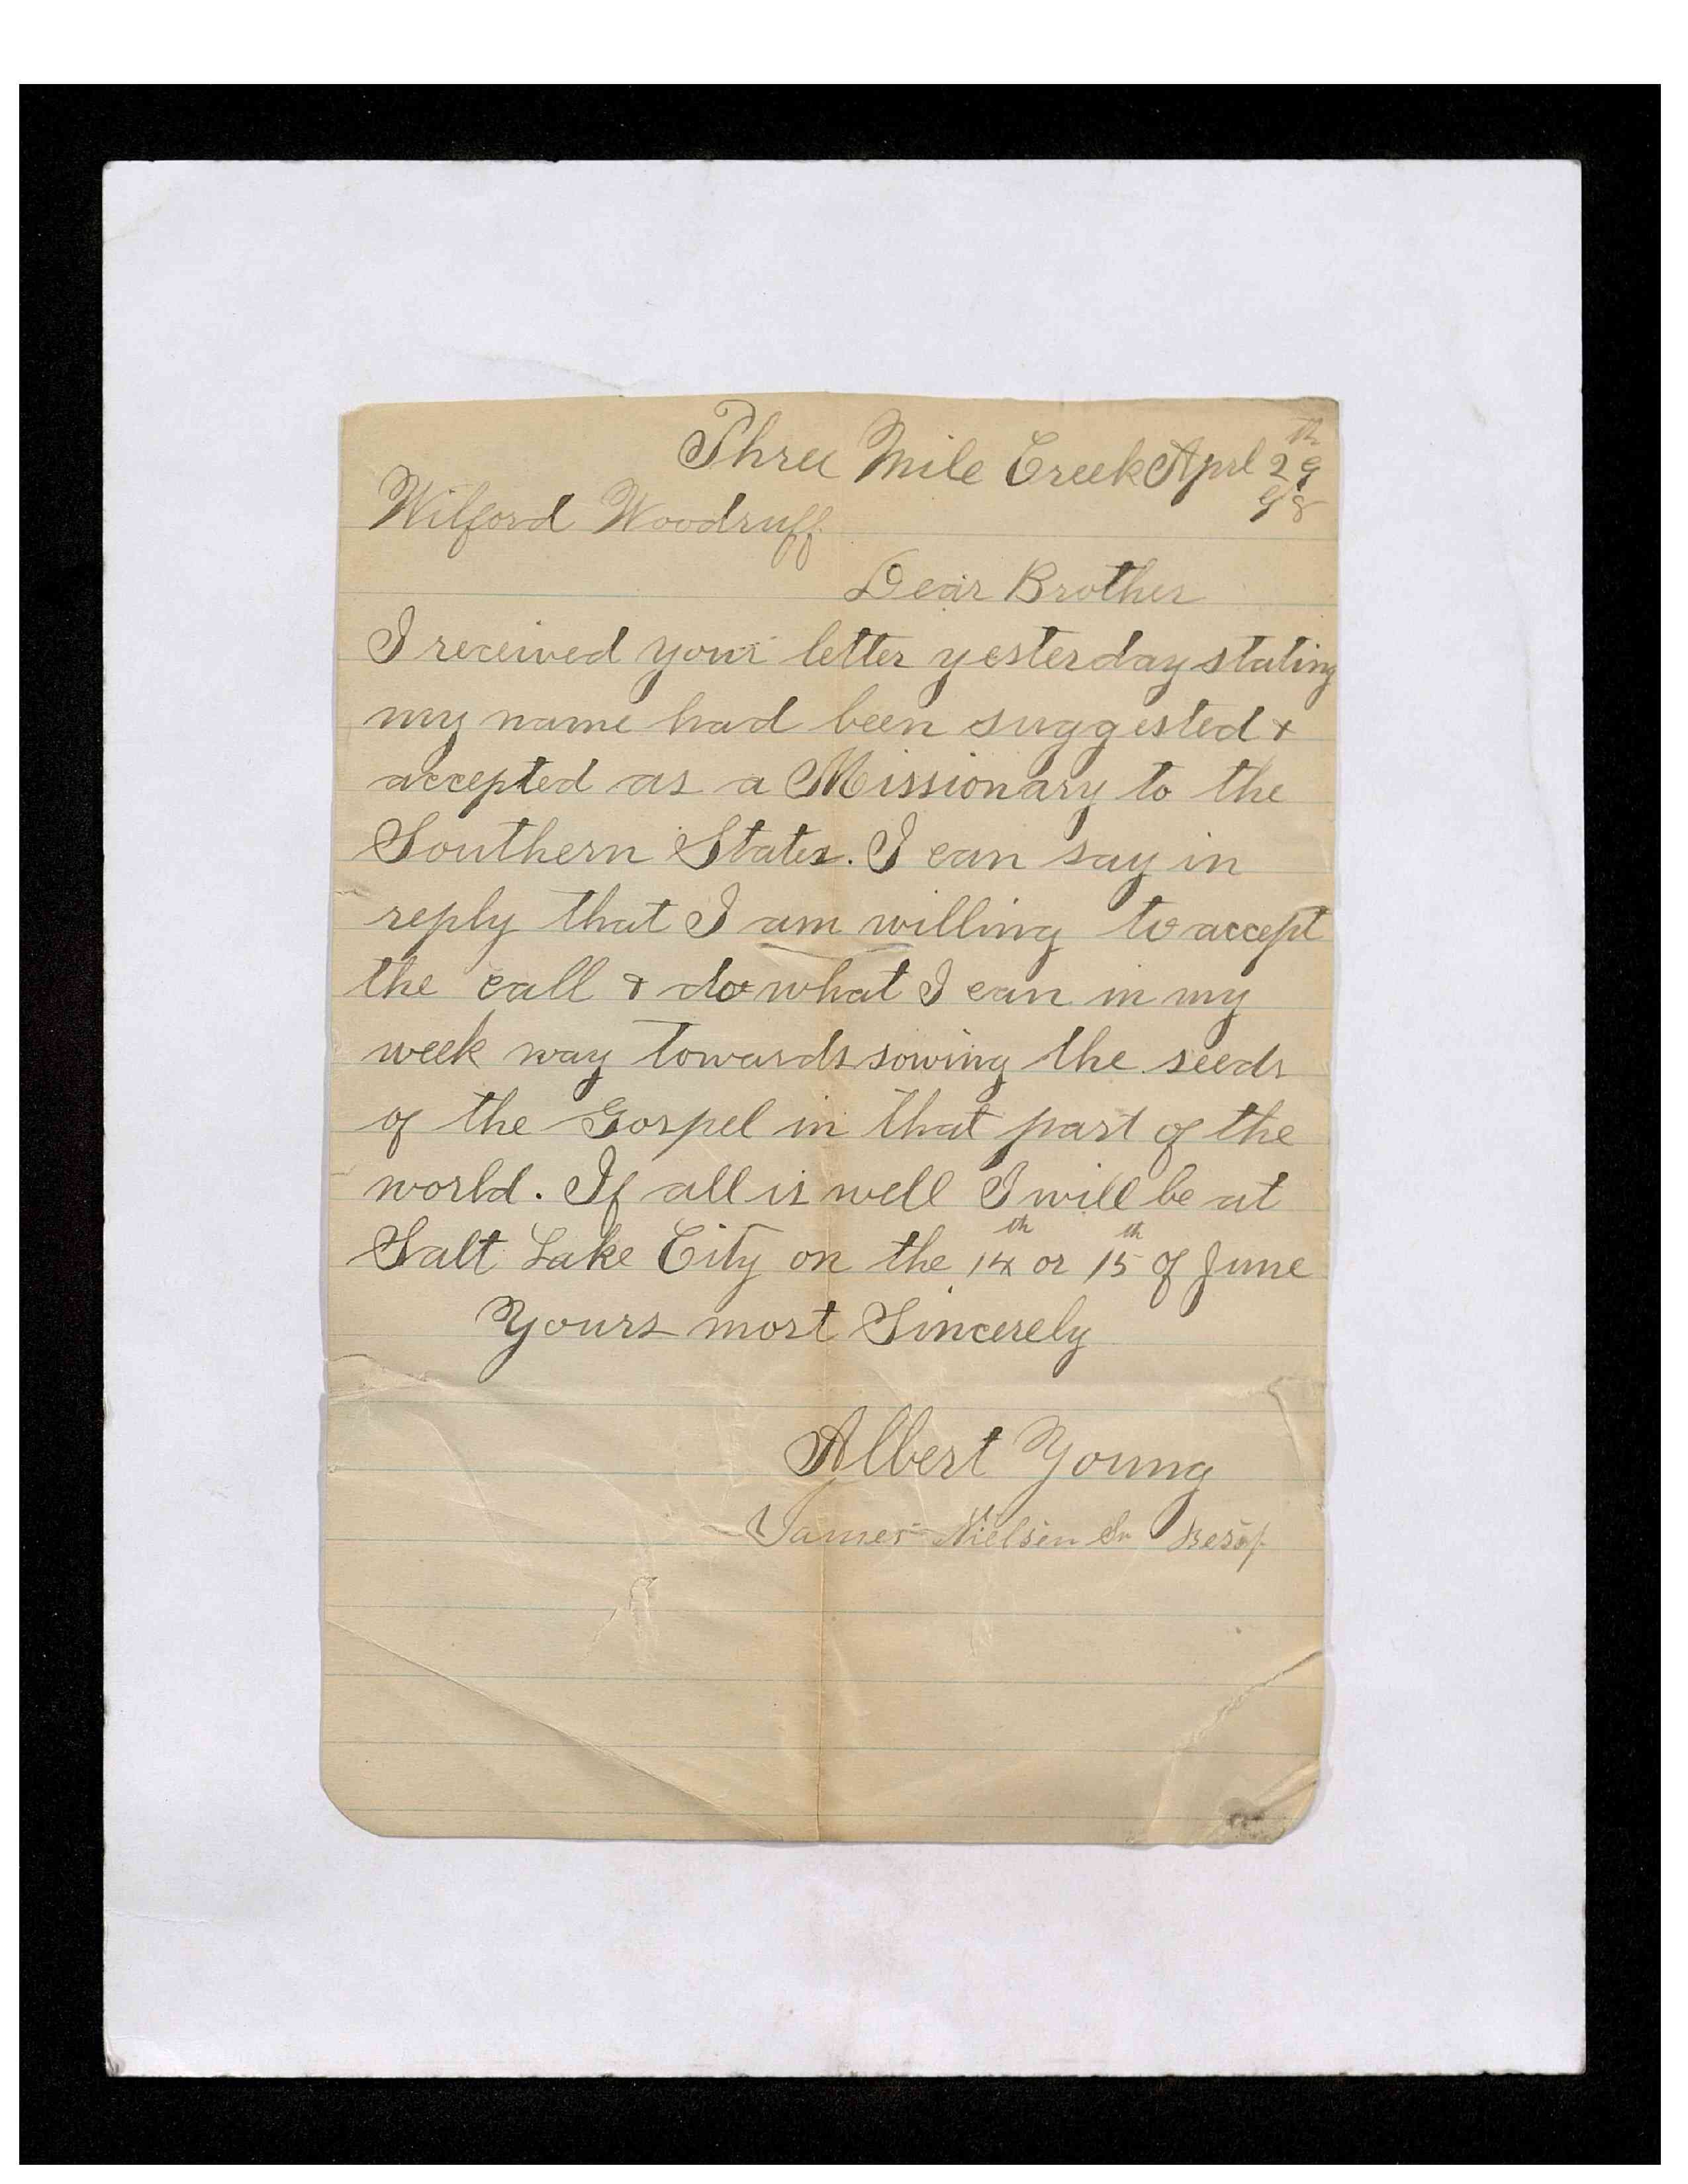 Three Mile Creek Aprl 29th
98
Wilford Woodruff
Dear Brother
I received your letter yesterday stating
my name had been suggested &
accepted as a Missionary to the
Southern States. I can say in
reply that I am willing to accept
the call & do what I can in my
week way towards sowing the seeds
of the Gospel in that part of the
world. If all is well I will be at
Salt Lake City on the 14th or 15th of June
Yours most Sincerely
Albert Young
James Nielsen